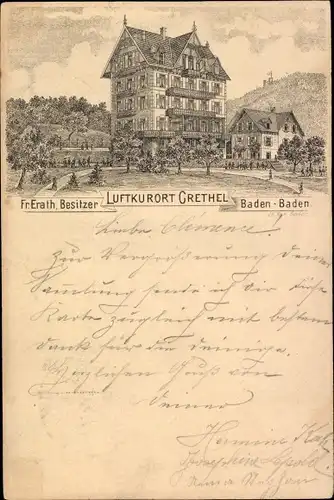 Fr. Erath, Besitzer LUFTKURORT GRETHEL Baden-Baden
Liebe Clémence!
Zur Vergrößerung deiner
Sammlung sende ich dir diese
Karte zugleich mit bestem
Dank für die deinige.
Herzlichen Gruß von
deiner
Hermine